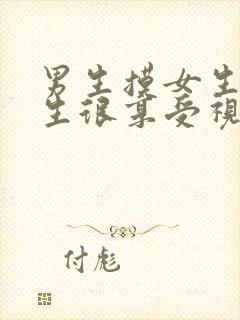 男生摸女生
生很享受视
付彪